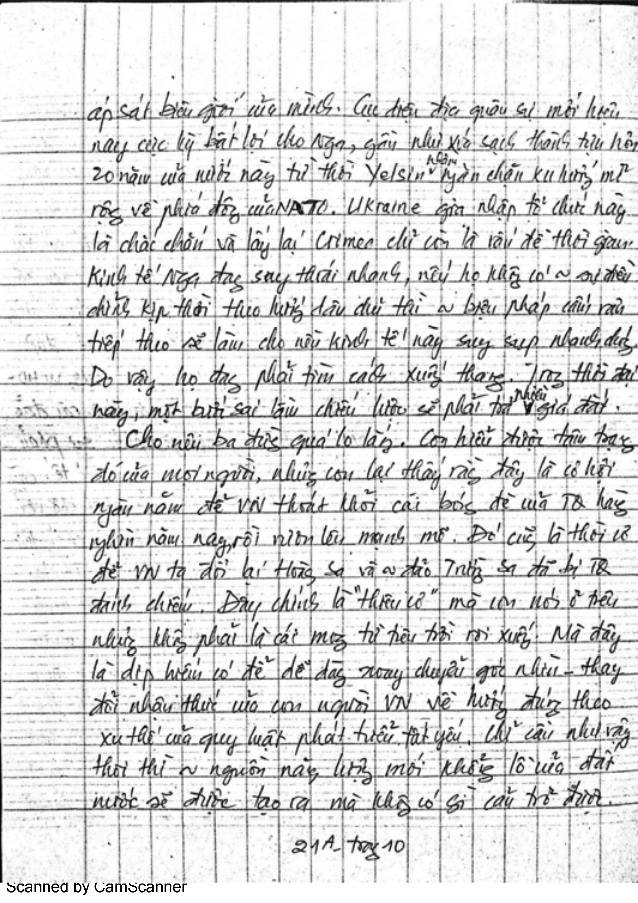 áp sát biên giới của mình. Cục diện địa quân sự mới hiện
nay cực kỳ bất lợi cho Nga, gần như xóa sạch thành tựu hơn
20 năm của nước này từ thời Yelsin nhằm ngăn chặn xu hướng mở
rộng về phía đông của NATO. Ukraine gia nhập tổ chức này
là chắc chắn và lấy lại Crimea chỉ còn là vấn đề thời gian.
Kinh tế Nga đag suy thoái nhanh, nếu họ khôg có ~ sự điều
chỉnh kịp thời theo hướng dân chủ thì ~ biện pháp cấm vận
tiếp theo sẽ làm cho nền kinh tế này suy sụp nhanh chóg.
Do vậy họ đag phải tìm cách xuốg thang. Trog thời đại
này, một bước sai lầm chiến lược sẽ phải trả nhiều giá đắt.
Cho nên ba đừg quá lo lắg. Con hiểu được tâm trạg
đó của mọi người, nhưg con lại thấy rằg đây là cơ hội
ngàn năm để VN thoát khỏi cái bóg đè của TQ hàg
nghìn năm nay, rồi vươn lên mạnh mẽ. Đó cũg là thời cơ
để VN ta đòi lại Hoàg Sa và ~ đảo Trườg Sa đã bị TQ
đánh chiếm. Đây chính là "thiên cơ" mà con nói ở trên
nhưg khôg phải là cái mog từ trên trời rơi xuốg. Mà đây
là dịp hiếm có để dễ dàg xoay chuyển góc nhìn - thay
đổi nhận thức của con người VN về hướg đúg theo
xu thế của quy luật phát triển tất yếu. Chỉ cần như vậy
thôi thì ~ nguồn năg lượg mới khổg lồ của đất
nước sẽ được tạo ra mà khôg có gì cản trở được.
21A - trag 10
Scanned by CamScanner